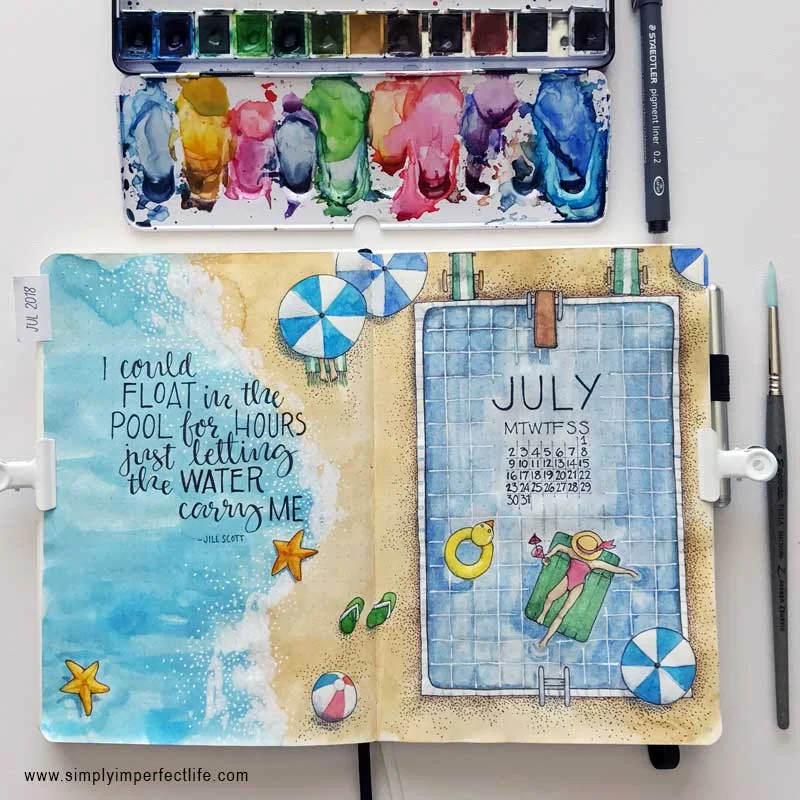 STAEDTLER pigment liner 0.2
JUL 2018
I could
FLOAT in the
POOL for HOURS
just letting
the WATER
carry ME
-JILL SCOTT
JULY
MTWTFSS
1
2 3 4 5 6 7 8
9 10 11 12 13 14 15
16 17 18 19 20 21 22
23 24 25 26 27 28 29
30 31
www.simplyimperfectlife.com